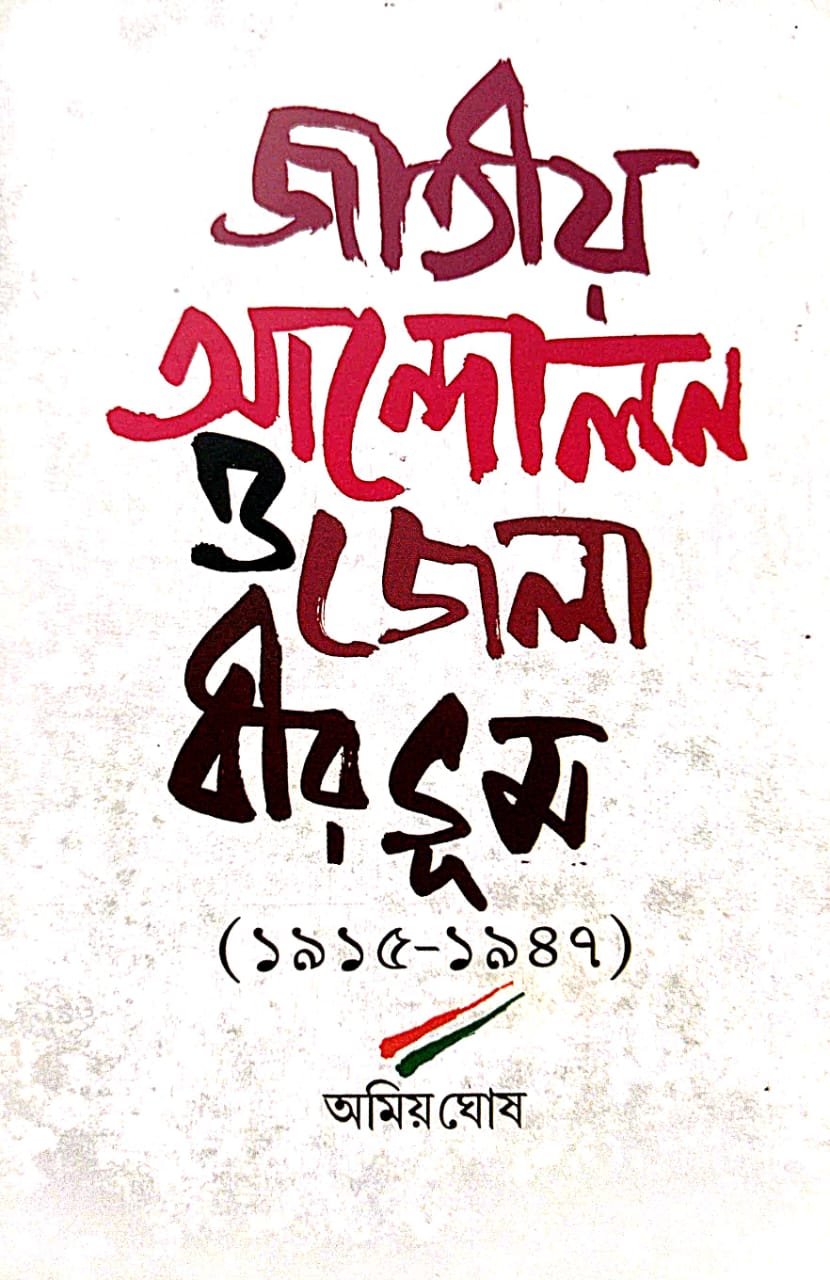 জাতীয়
আন্দোলন
ও জেলা
বীরভূম
(১৯১৫-১৯৪৭)
অমিয় ঘোষ